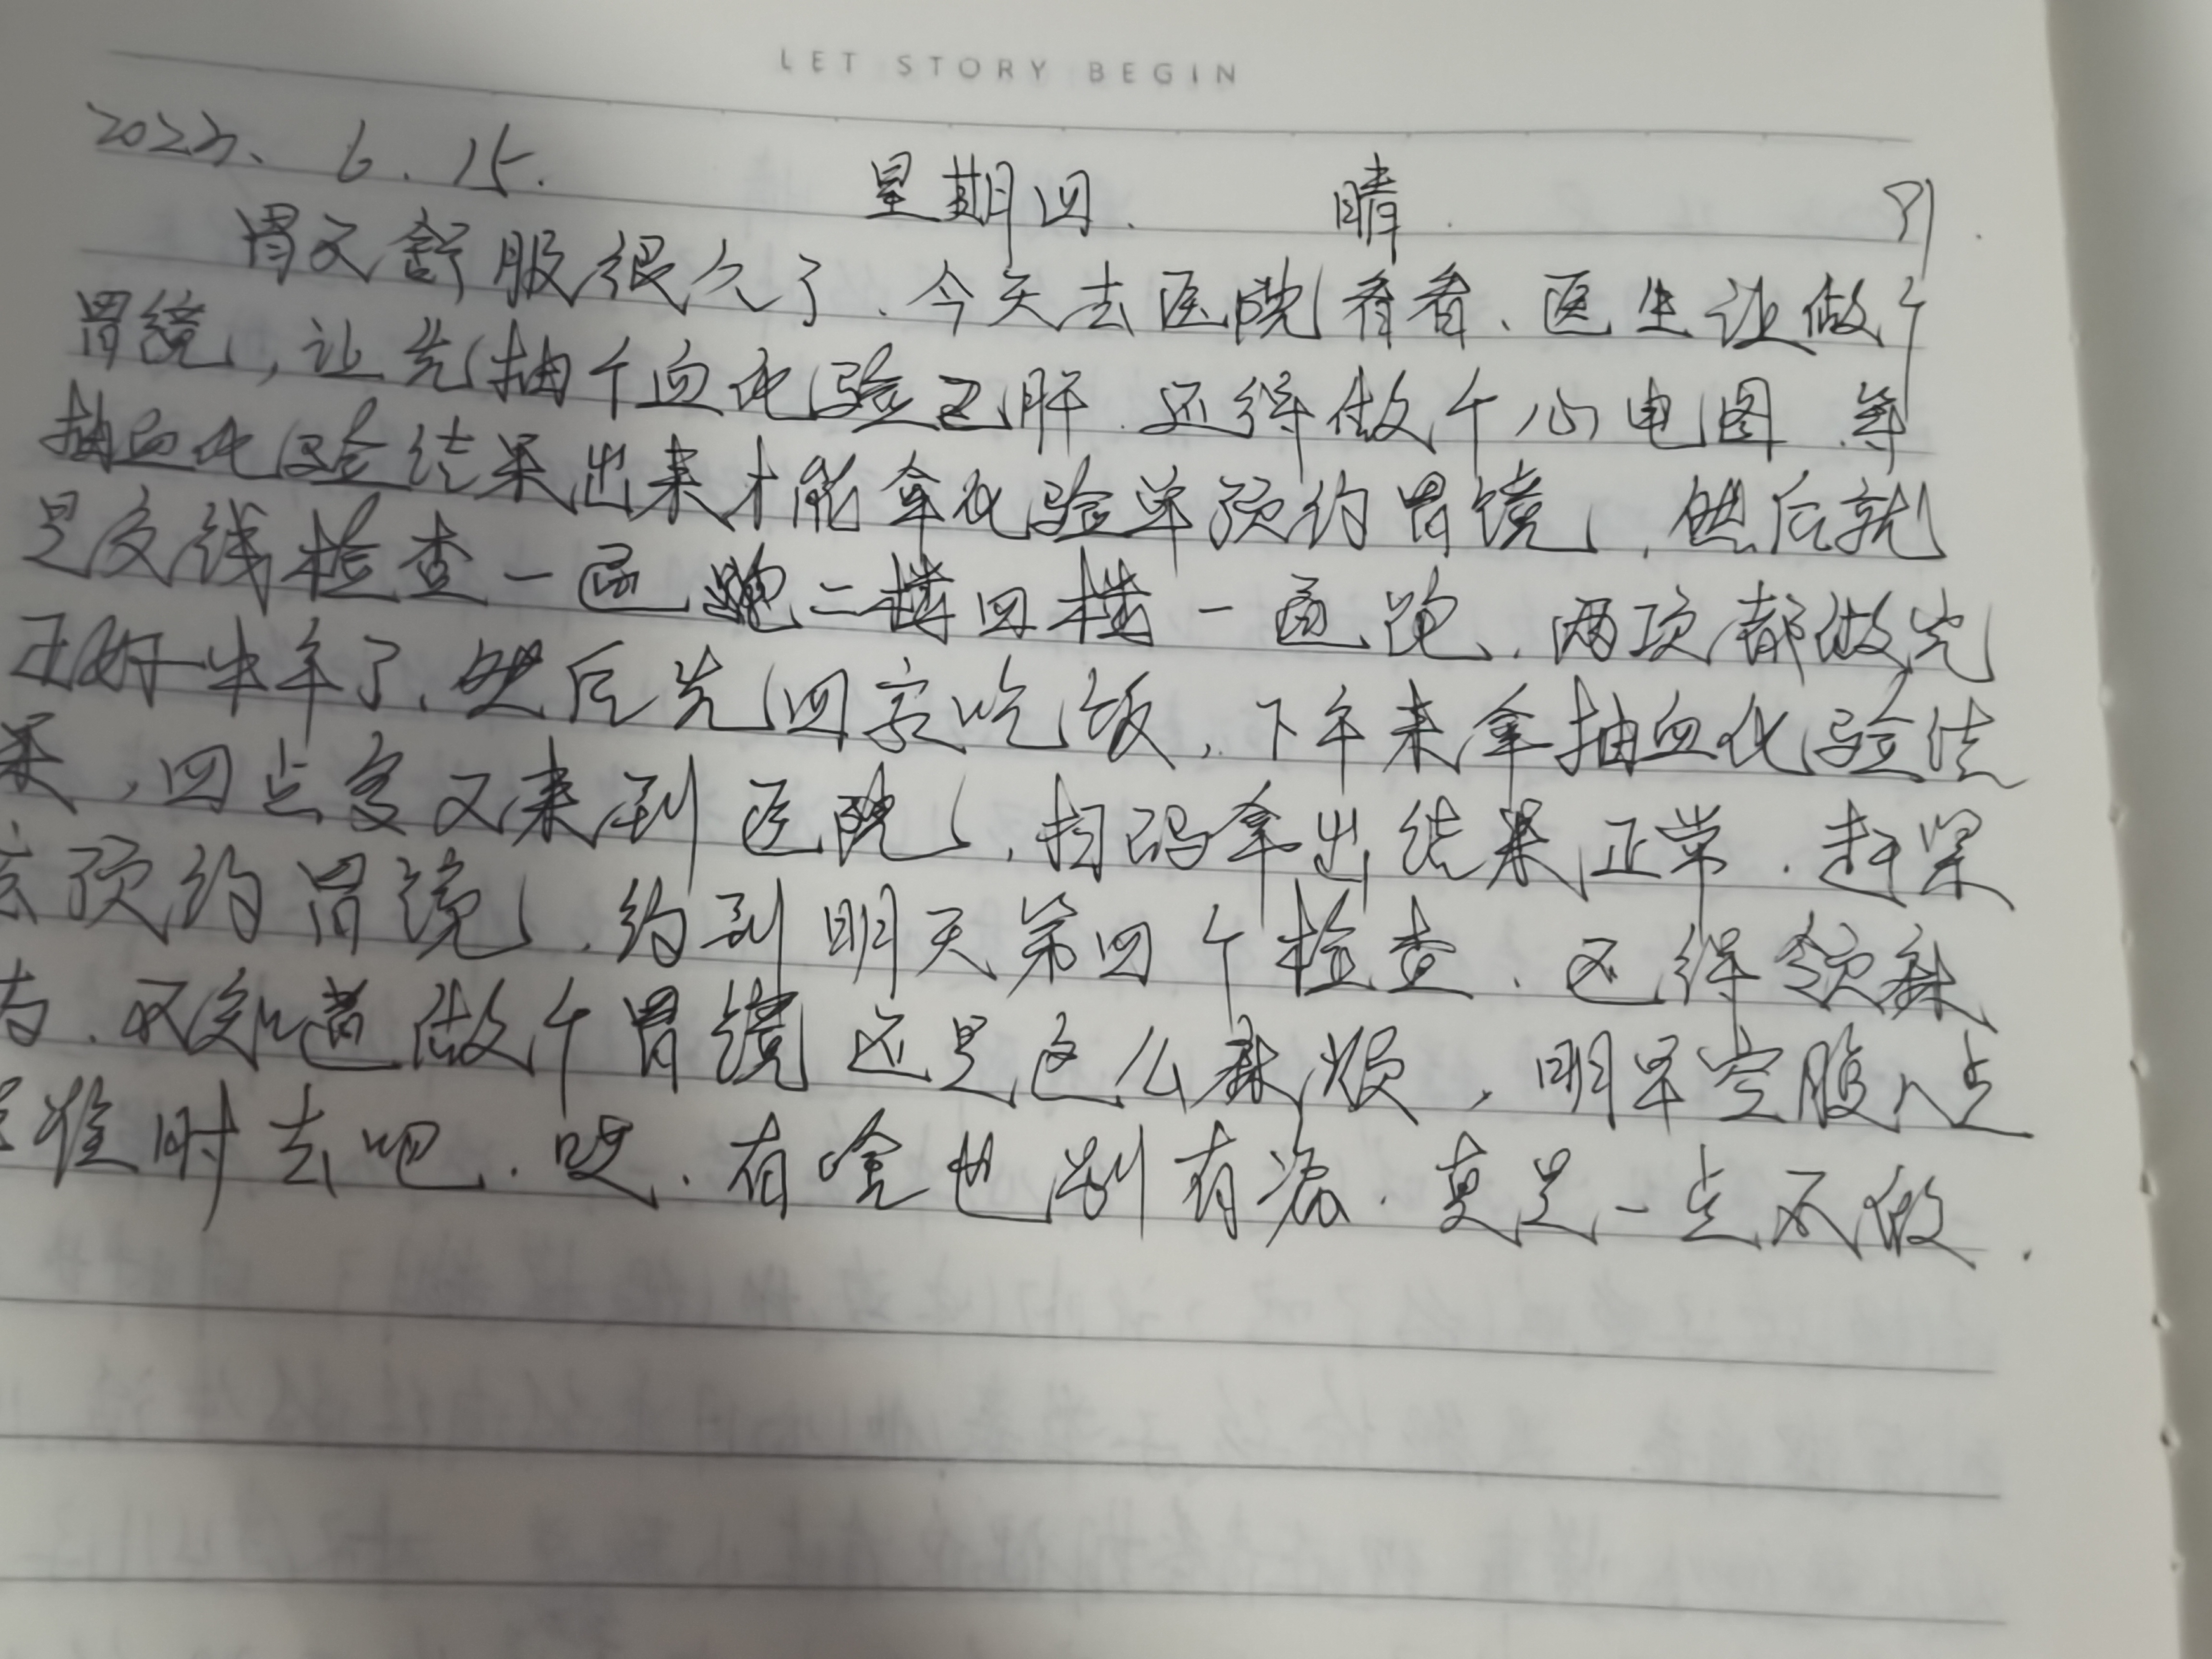 LET STORY BEGIN
2023. 6. 15. 星期四. 晴. 91.
胃不舒服很久了、今天去医院看看、医生让做个
胃镜，让先抽个血化验乙肝.还得做个心电图.等
抽血化验结果出来才能拿化验单预约胃镜，然后就
是交钱检查一通跑二楼四楼一通跑、两项都做完
正好中午了、然后先回家吃饭，下午来拿抽血化验结
果，四点多又来到医院，扫码拿出结果正常.赶紧
去预约胃镜，约到明天第四个检查、还得领麻
药.不知道做个胃镜还是这么麻烦，明早空腹八点
准时去吧.哎.有啥也别有病.真是一点不假.